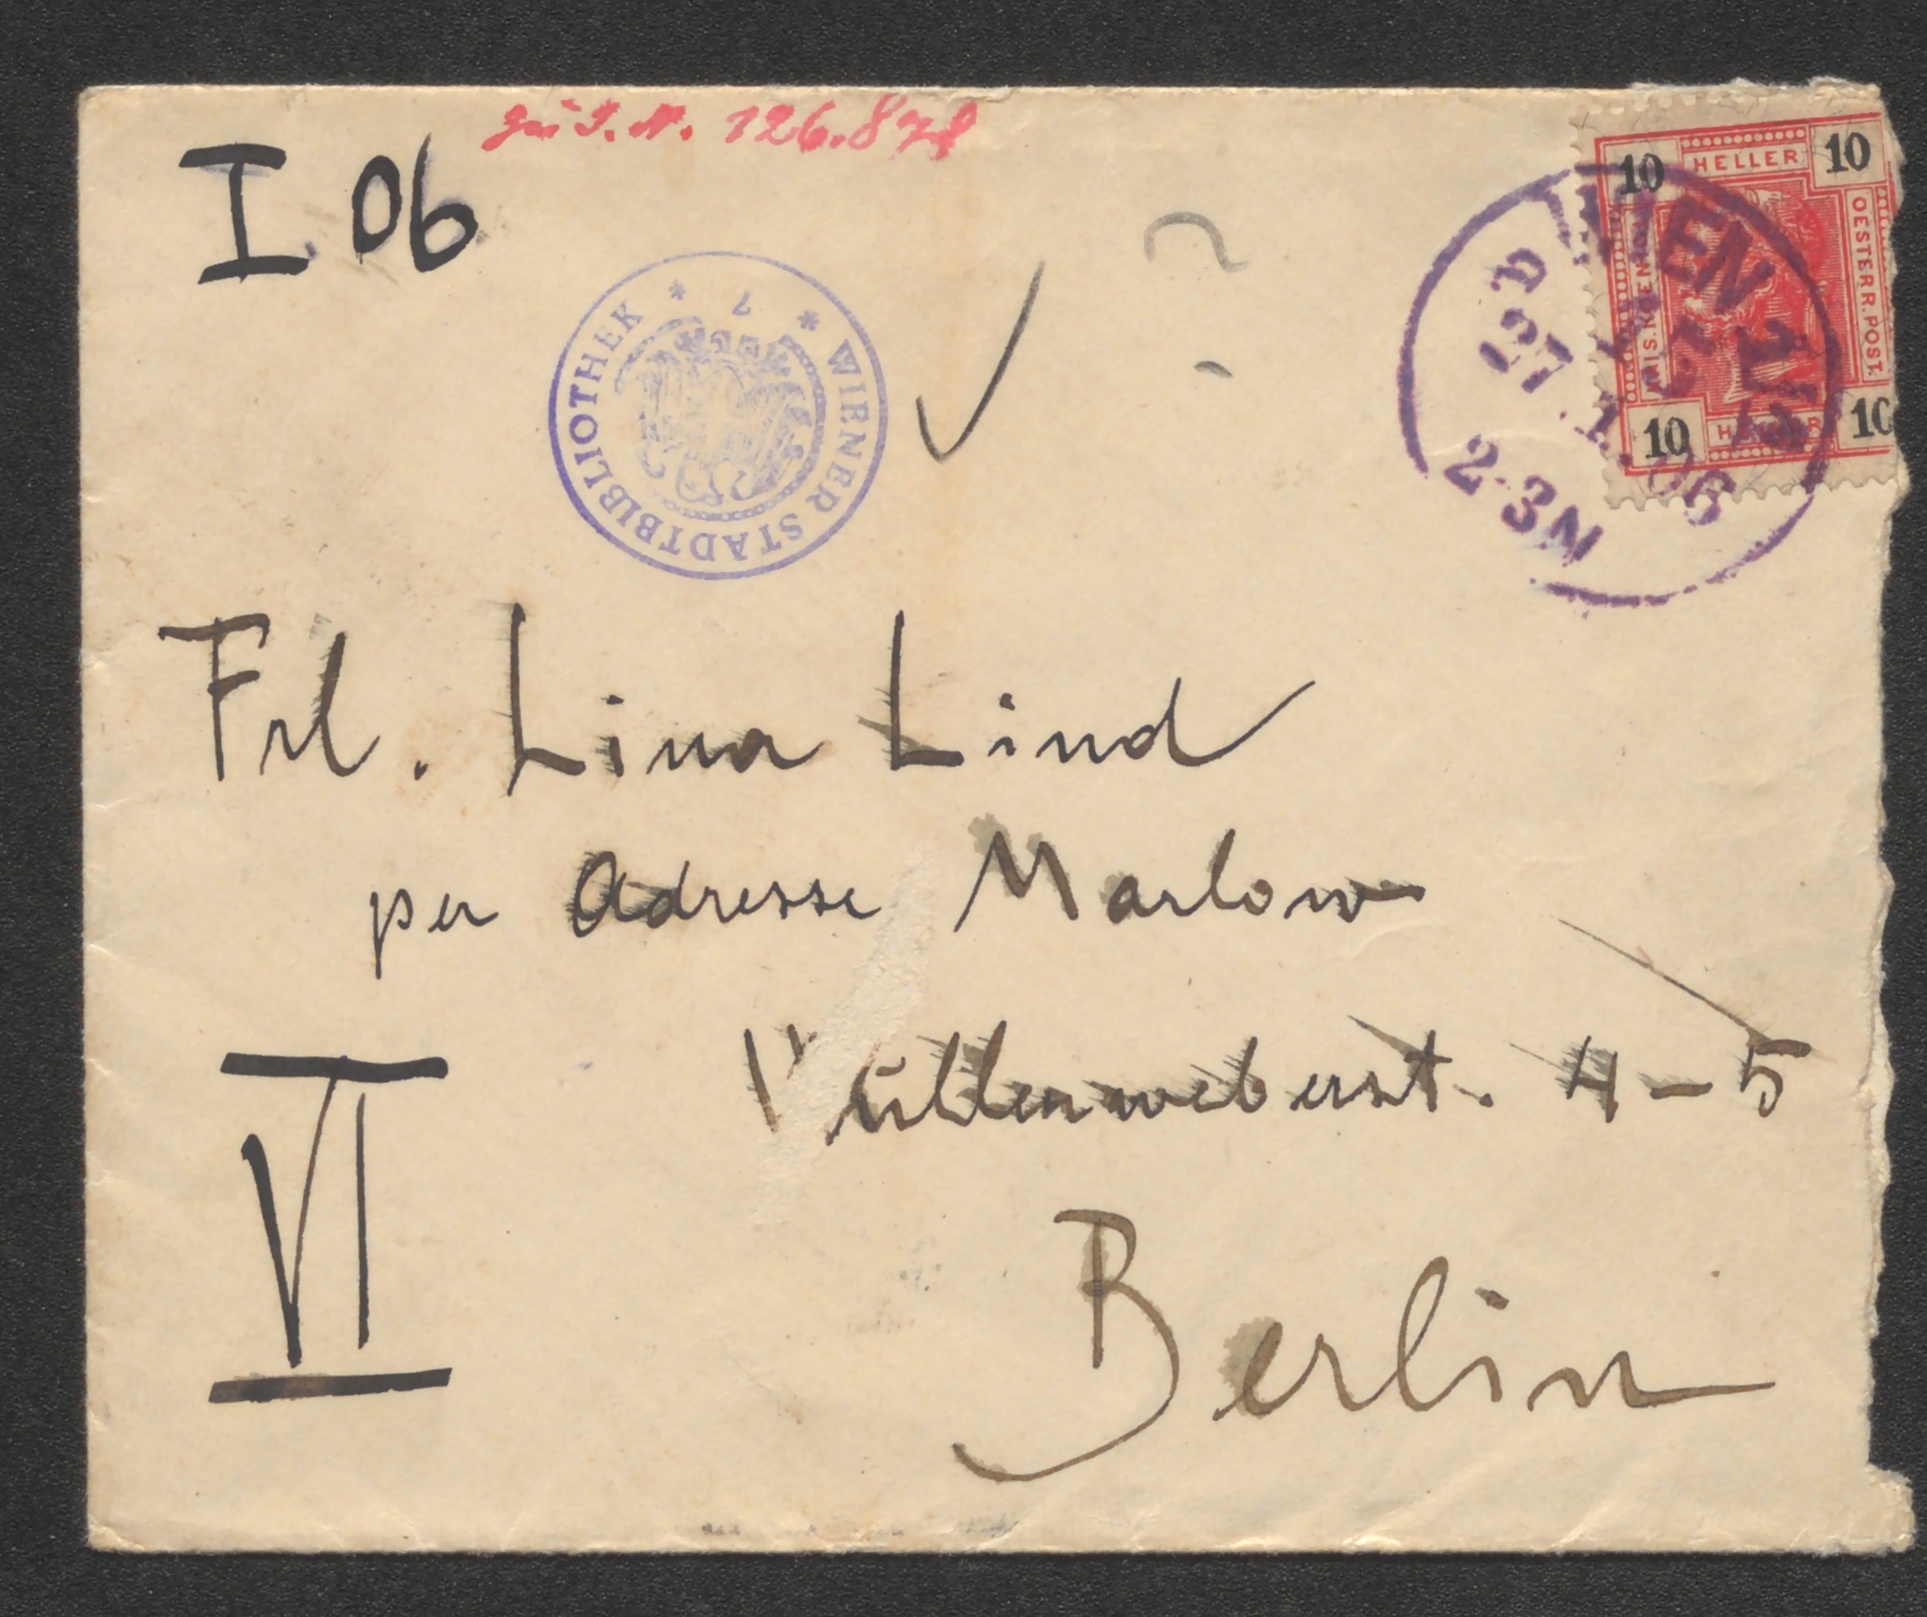 zu I. N. 126.878
I 06
10 HELLER 10
OESTERR. POST.
10 10
WIEN
27. 1. 06
2-3N
* WIENER STADTBIBLIOTHEK *
7
?
Frl. Lina Lind
per Adresse Marlow
Wullenweberst. 4-5
VI
Berlin